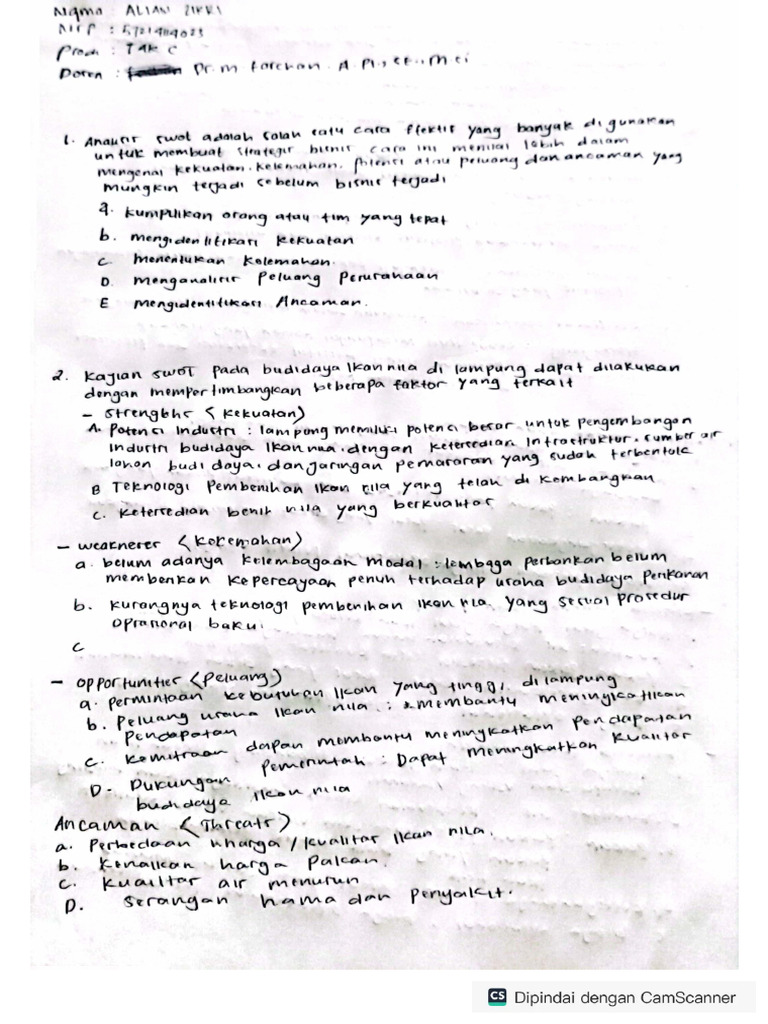 Nama : ALIAN ZIKRI
Prodi : TAK C
Dosen : Dr. M
1. Analisis swot adalah salah satu cara efektif yang banyak di gunakan
untuk membuat strategis bisnis cara ini menilai lebih dalam
mengenai kekuatan. kelemahan. potensi atau peluang dan ancaman yang
mungkin terjadi sebelum bisnis terjadi
a. kumpulkan orang atau tim yang tepat
b. mengidentifikasi kekuatan
c. menentukan kelemahan.
D. menganalisis peluang perusahaan
E mengidentifikasi Ancaman.
2. Kajian SWOT pada budidaya Ikan nila di lampung dapat dilakukan
dengan mempertimbangkan beberapa faktor yang terkait
- Strengths (kekuatan)
A. Potensi Industri : lampung memiliki potensi besar untuk pengembangan
Industri budidaya Ikan nila. dengan ketersedian Infrastruktur, sumber air
lahan budi daya. dan jaringan pemasaran yang sudah terbentuk
B Teknologi Pembenihan Ikan nila yang telah di kembangkan
C. Ketersedian benih nila yang berkualitas
- weaknesses (kelemahan)
a. belum adanya kelembagaan modal : lembaga perbankan belum
memberikan kepercayaan penuh terhadap usaha budidaya perikanan
b. kurangnya teknologi pembenihan Ikan nila yang sesuai prosedur
oprasional baku.
C
- opportunities (peluang)
a. permintaan kebutuhan Ikan yang tinggi di lampung
b. Peluang usaha Ikan nila : membantu meningkatkan
pendapatan
c. kemitraan dapan membantu meningkatkan pendapatan
D. Dukungan pemerintah : Dapat meningkatkan kualitas
budidaya Ikan nila
Ancaman (Threats)
a. Perbedaan harga / kualitas Ikan nila.
b. Kenaikan harga Pakan.
c. kualitas air menurun
D. serangan hama dan Penyakit.
CS Dipindai dengan CamScanner